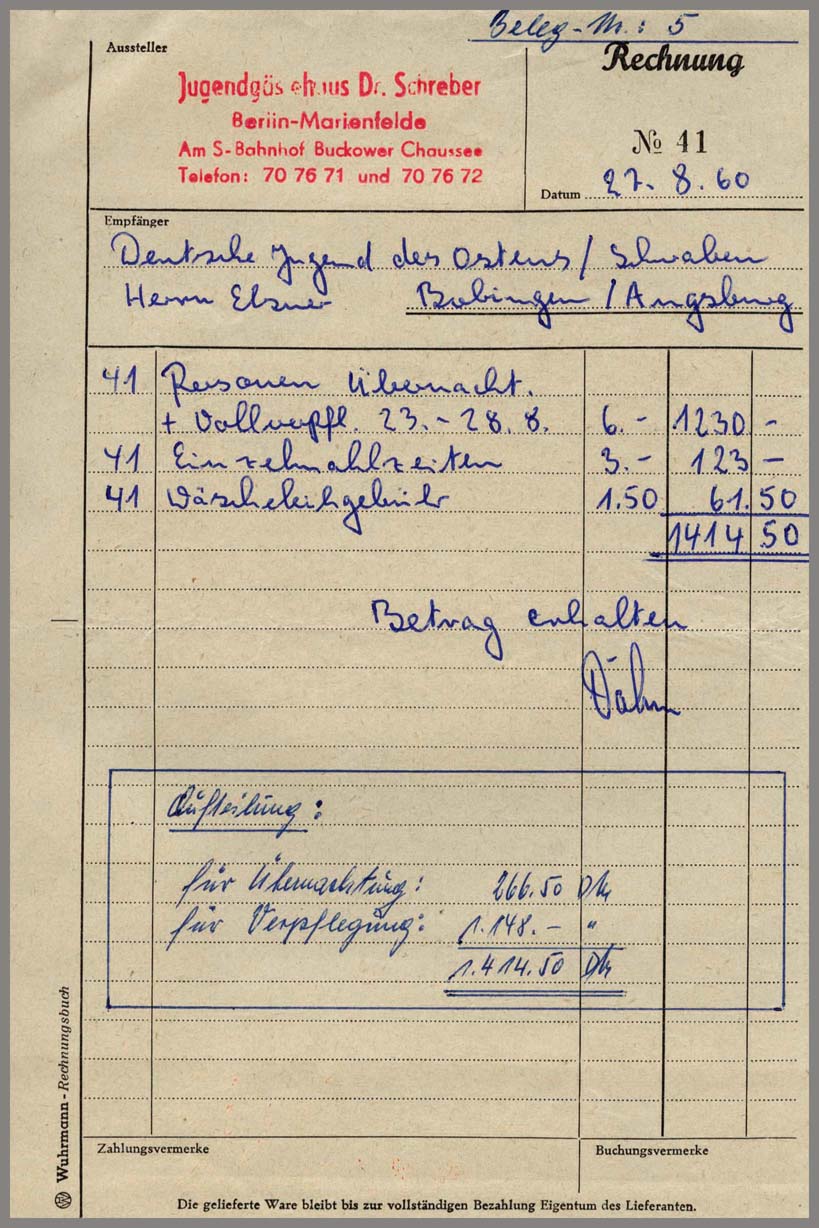 Beleg-Nr.: 5
Aussteller
Rechnung
Jugendgäs ehaus Dr. Schreber
Berlin-Marienfelde
Am S-Bahnhof Buckower Chaussee
Telefon: 70 76 71 und 70 76 72
№ 41
Datum 27. 8. 60
Empfänger
Deutsche Jugend des Ostens / Schwaben
Herrn Elsner Bobingen / Augsburg
41 Personen Übernacht.
+ Vollverpfl. 23. - 28. 8. 6.- 1230 -
41 Einzelmahlzeiten 3.- 123 -
41 Wäscheleihgebühr 1.50 61.50
1414 50
Betrag erhalten
Aufteilung:
für Übernachtung: 266.50 DM
für Verpflegung: 1.148.- "
1.414.50 DM
Wuhrmann - Rechnungsbuch
Zahlungsvermerke
Buchungsvermerke
Die gelieferte Ware bleibt bis zur vollständigen Bezahlung Eigentum des Lieferanten.